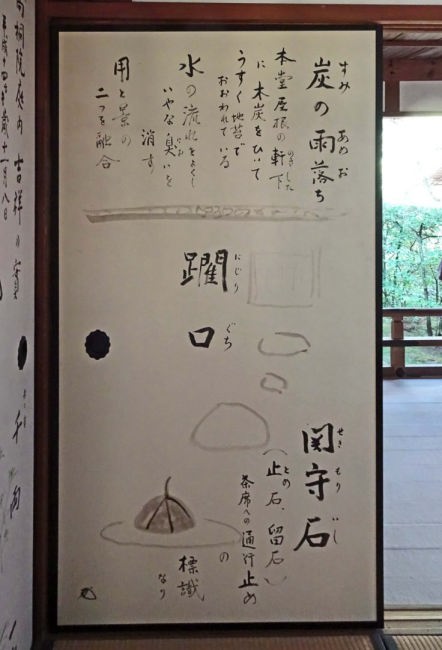 炭の雨落ち
すみ あめ お
本堂屋根の軒下
のきした
に木炭をひいて
うすく地苔で
おおわれている
水の流れをよくし
いやな臭いを
にお
消す
用と景の
二つを融合
躙口
にじり ぐち
関守石
せき もり いし
(止石、留石)
とめ
茶席への通行止め
の
標識
なり
庭内 吉祥の寳
平成十四年 十一月八日